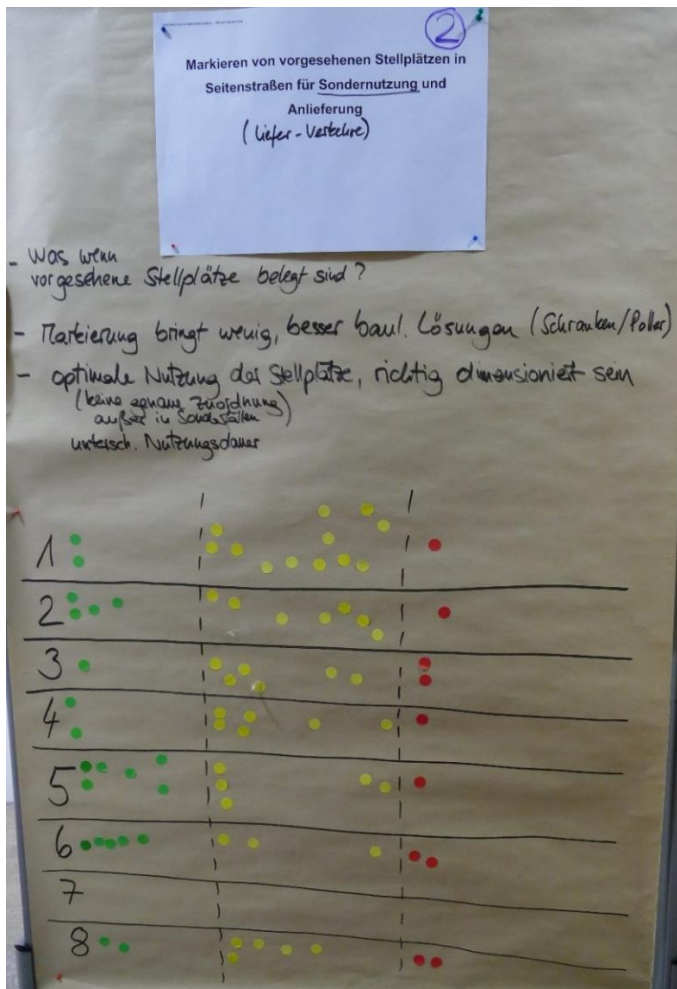 2
Markieren von vorgesehenen Stellplätzen in
Seitenstraßen für Sondernutzung und
Anlieferung
(Liefer-Verkehre)
- Was wenn
vorgesehene Stellplätze belegt sind?
- Markierung bringt wenig, besser baul. Lösungen (Schranken/Poller)
- optimale Nutzung der Stellplätze, richtig dimensioniert sein
(keine genaue Zuordnung)
außer in Sonderfällen
untersch. Nutzungsdauer
1
2
3
4
5
6
7
8